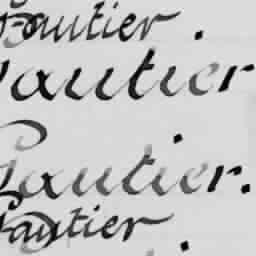 Gautier.
Gautier
Gautier.
Gautier.